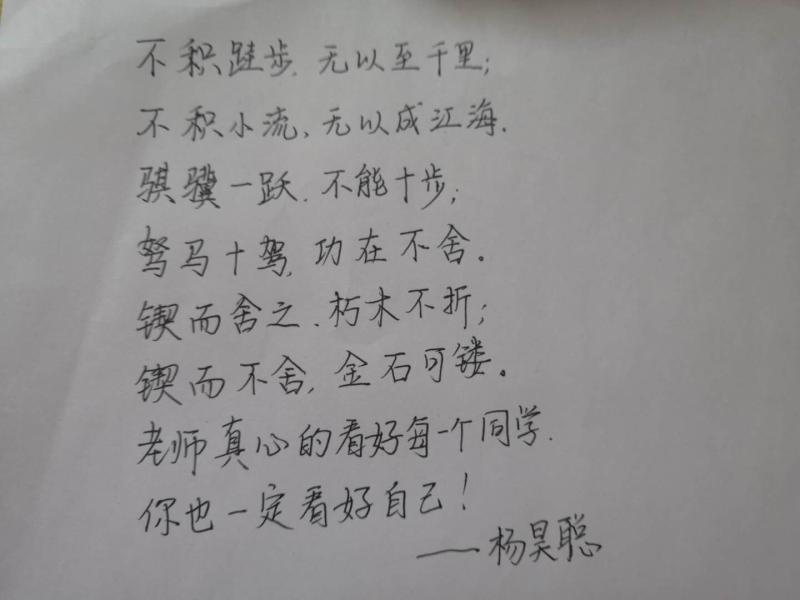 不积跬步,无以至千里;
不积小流、无以成江海.
骐骥一跃.不能十步;
驽马十驾,功在不舍。
锲而舍之.朽木不折;
锲而不舍,金石可镂。
老师真心的看好每一个同学.
你也一定看好自己!
——杨昊聪